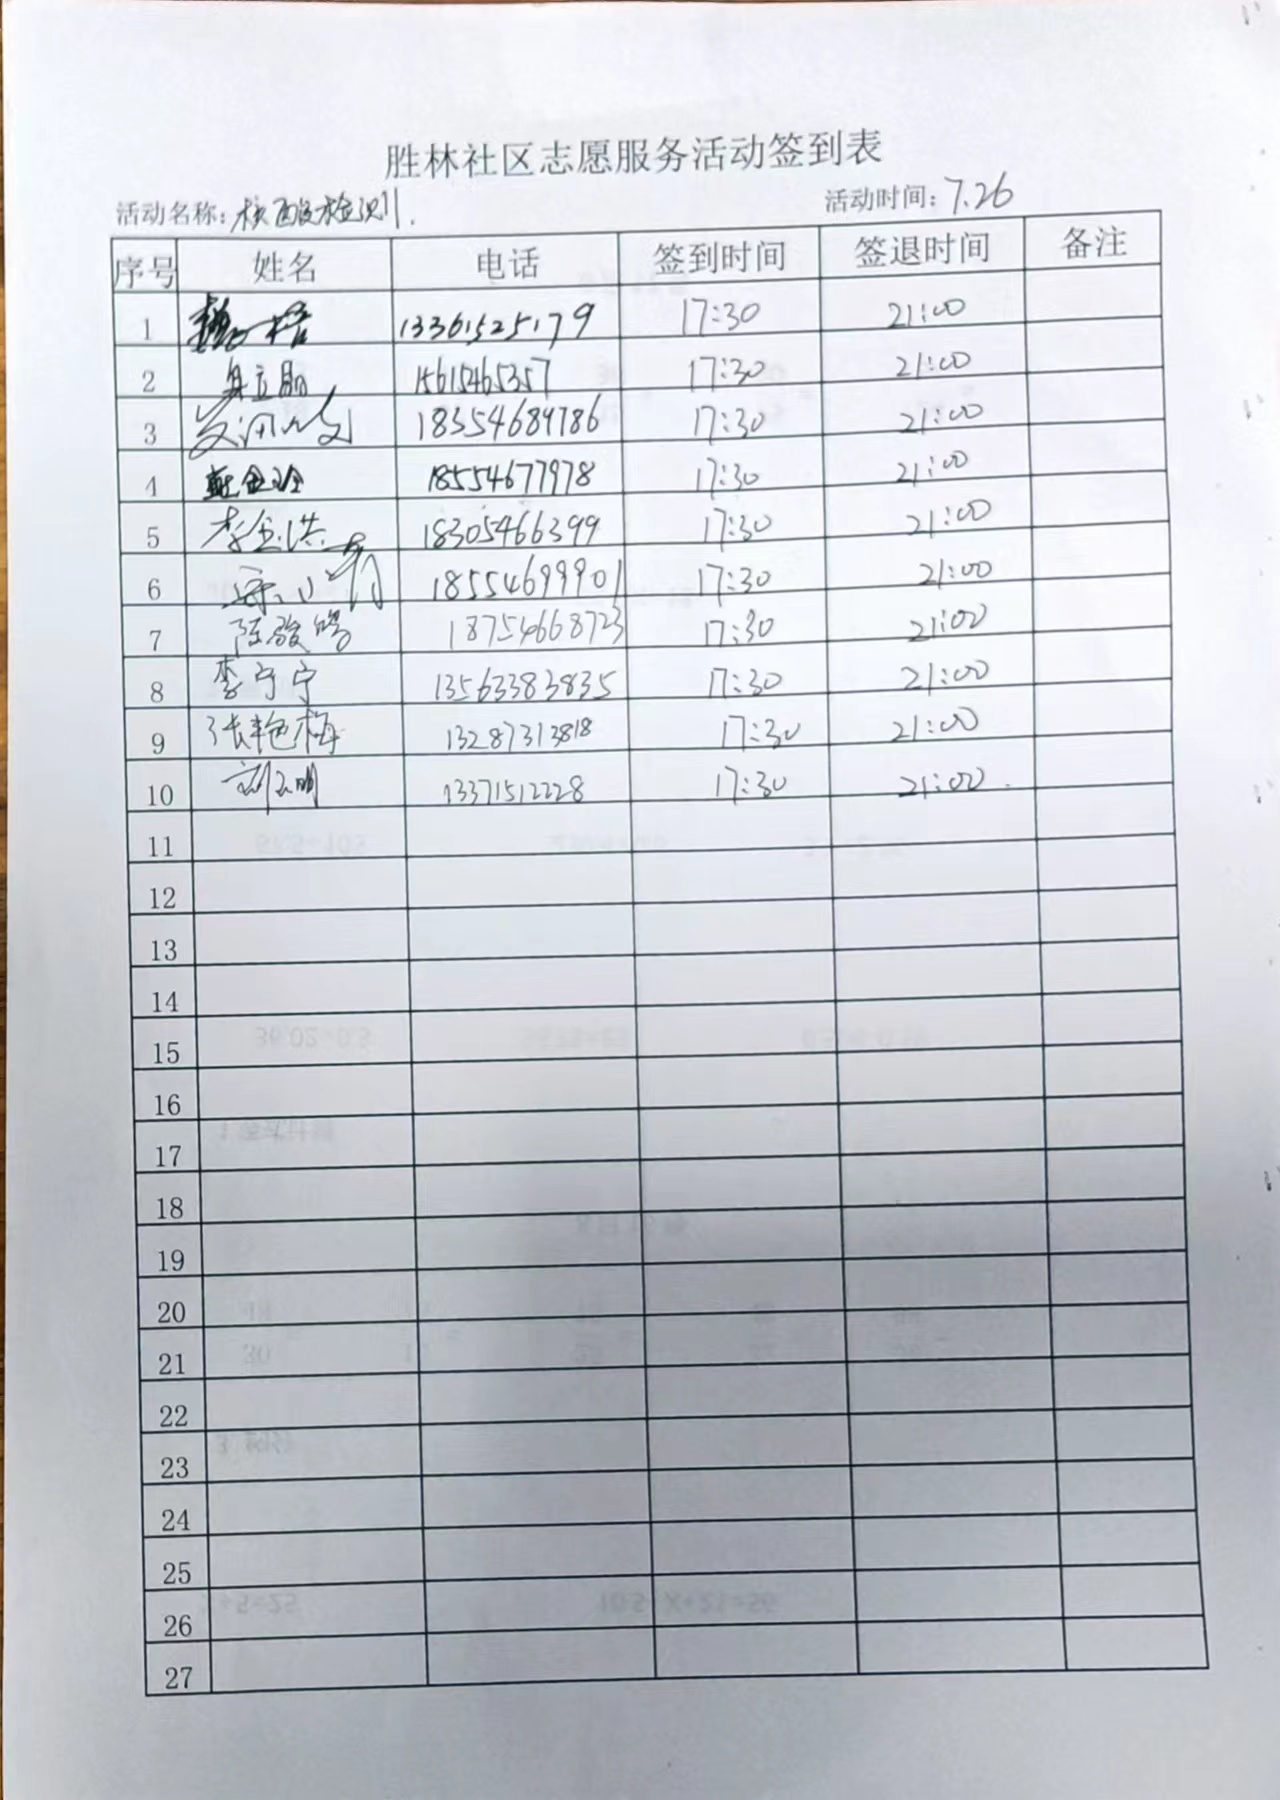 胜林社区志愿服务活动签到表
活动名称:核酸检测. 活动时间:7.26
序号 姓名 电话 签到时间 签退时间 备注
1 13361525179 17:30 21:00
2 15615465357 17:30 21:00
3 18354689786 17:30 21:00
4 18554677978 17:30 21:00
5 李金洪 18305466399 17:30 21:00
6 18554699901 17:30 21:00
7 陈骏鹏 18754668723 17:30 21:00
8 李宁宁 13563383835 17:30 21:00
9 张艳梅 13287313818 17:30 21:00
10 刘玉明 13371512228 17:30 21:00.
11
12
13
14
15
16
17
18
19
20
21
22
23
24
25
26
27